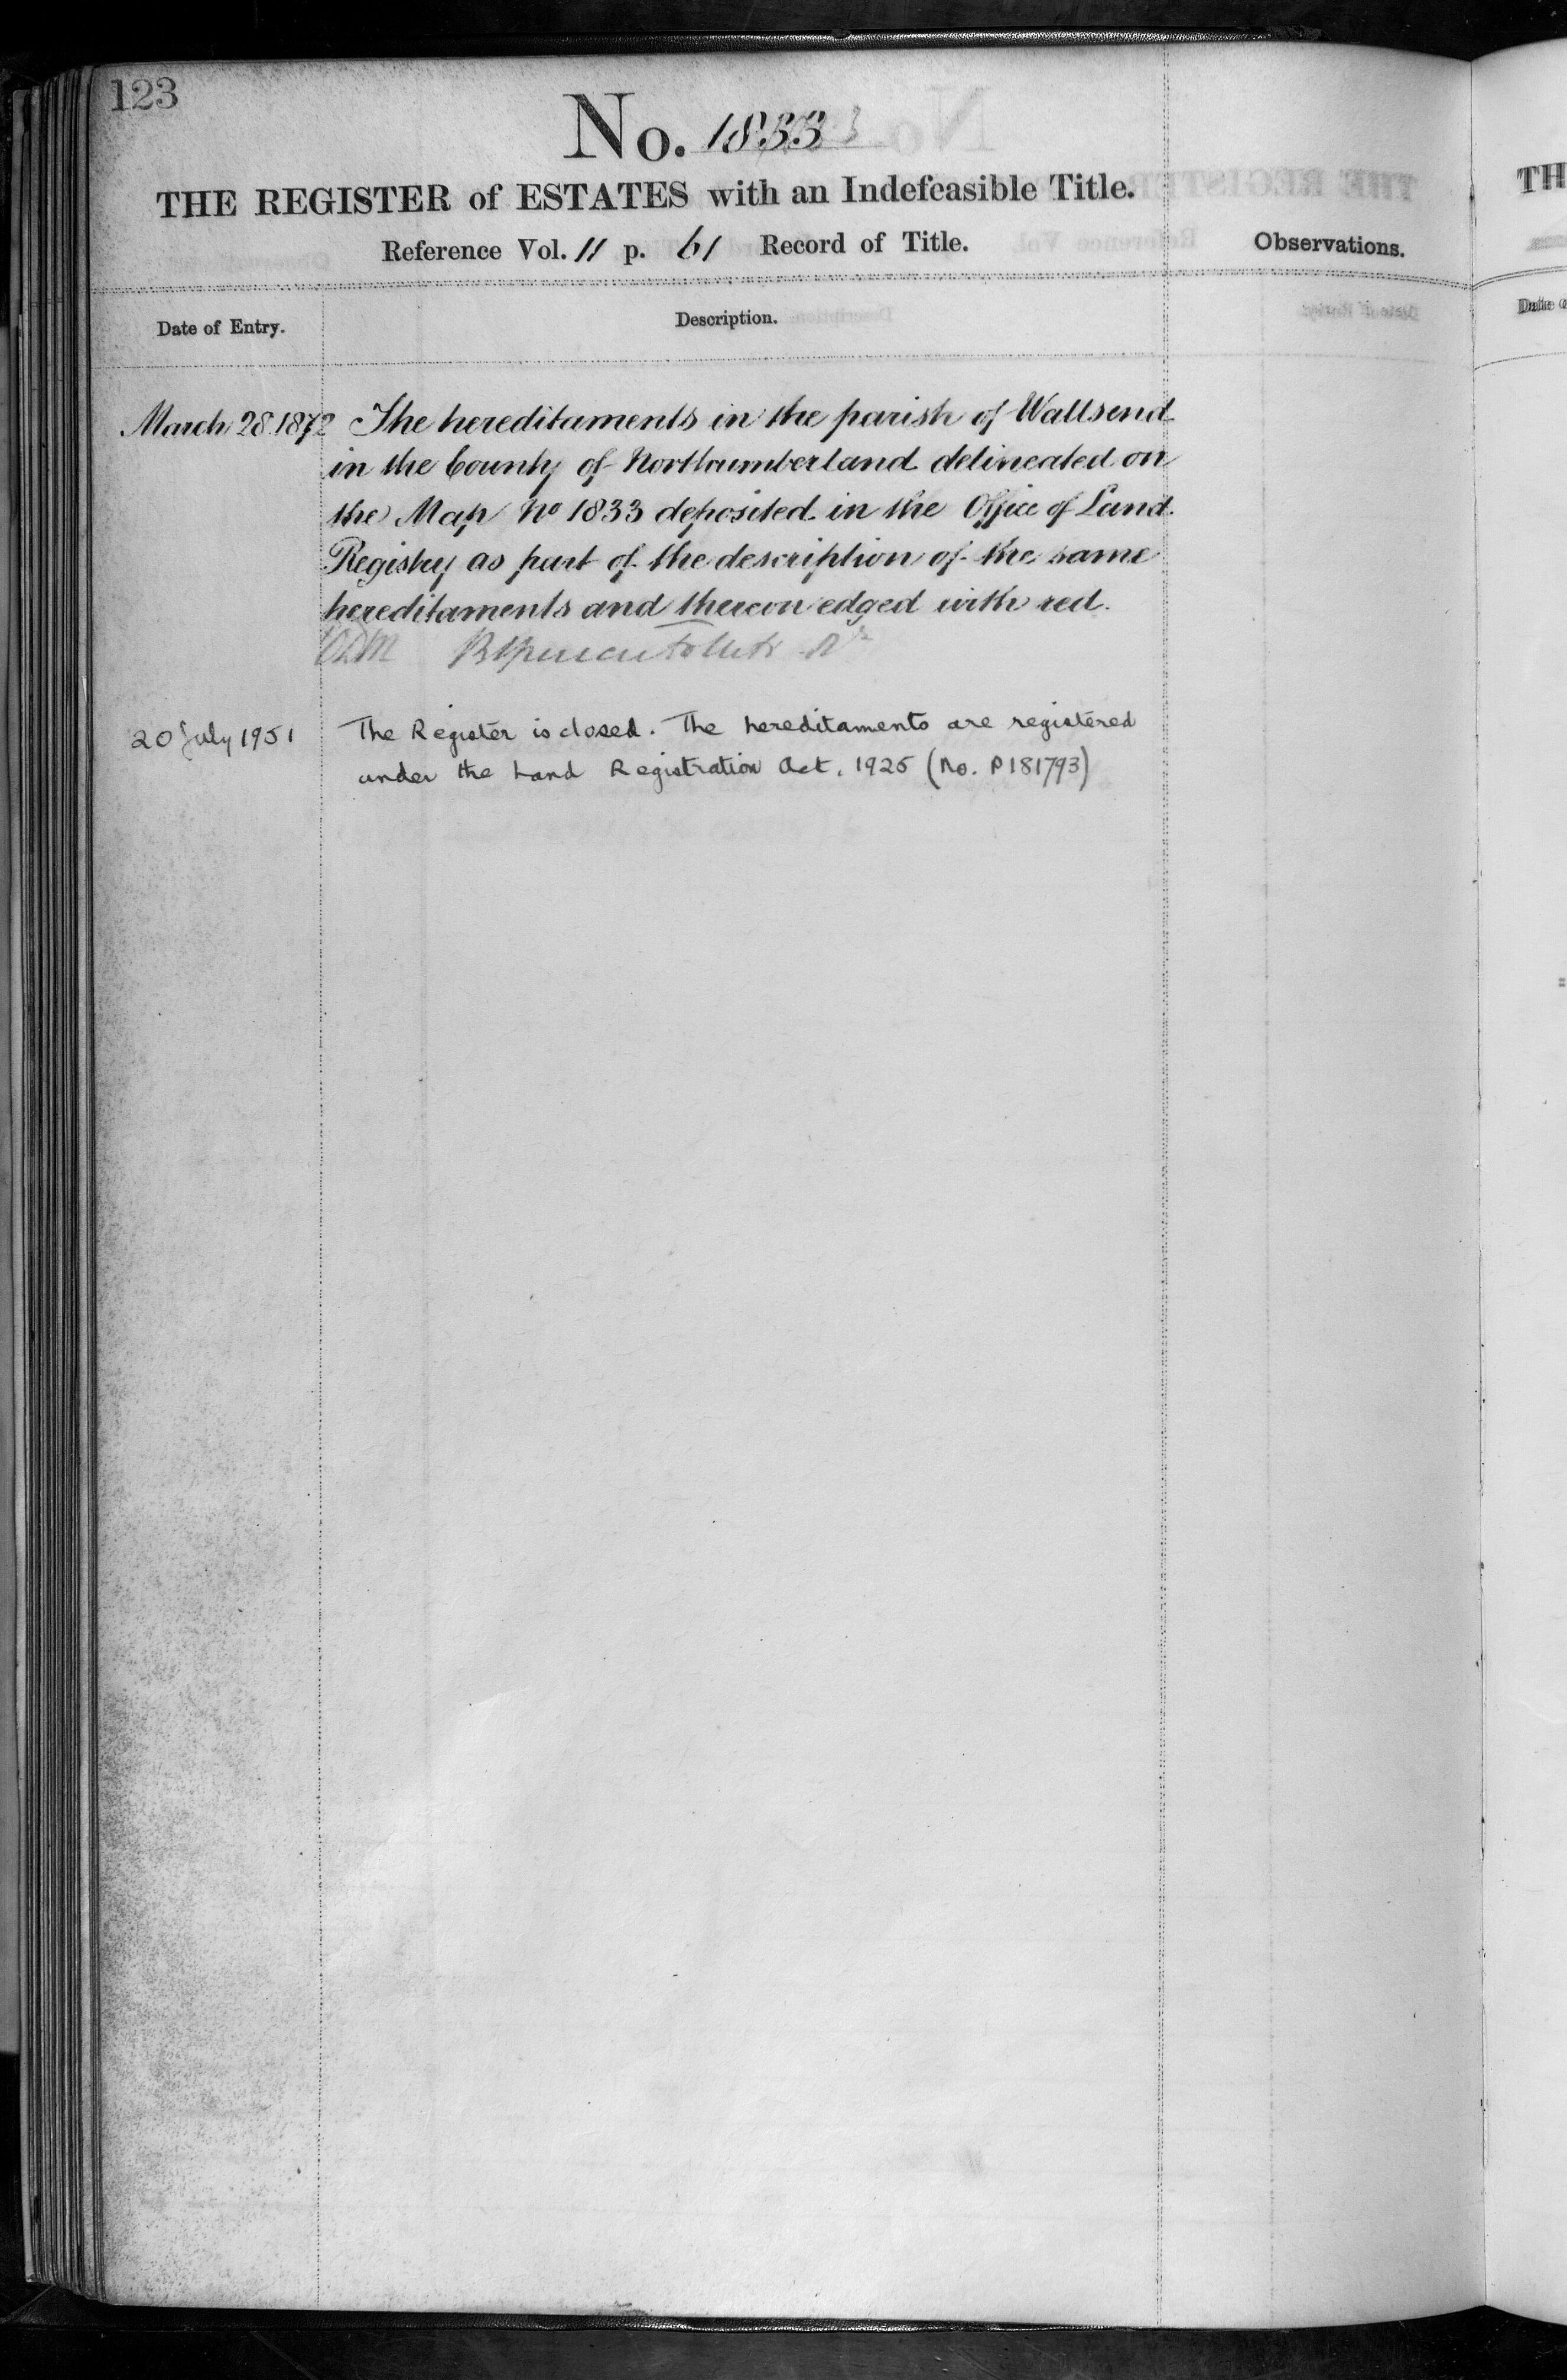 123
No. 1833
THE REGISTER of ESTATES with an Indefeasible Title.
Reference Vol. 11 p. 61 Record of Title.
Observations.
Date of Entry.
Description.
March 28. 1872 The hereditaments in the parish of Wallsend
in the County of Northumberland delineated on
the Map No 1833 deposited in the Office of Land
Registry as part of the description of the same
hereditaments and thereon edged with red.
20 July 1951 The Register is closed. The hereditaments are registered
under the Land Registration Act, 1925 (No. P181793)
TH
Date